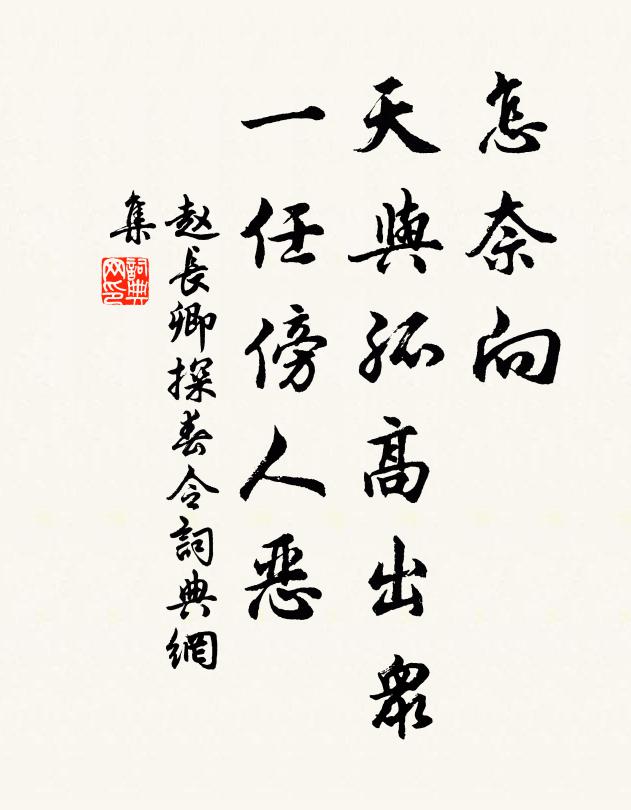 怎奈向
天與孤高出眾
一任傍人惡
赵長卿探春令詞典網
集
詞典
网印